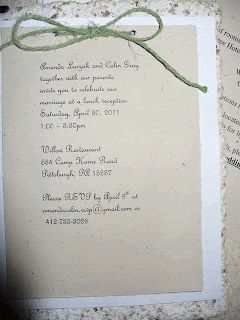 Amanda Luczak and Colin Gray
together with our parents
invite you to celebrate our
marriage at a lunch reception
Saturday, April 30, 2011
1:00 - 3:30pm
Willow Restaurant
634 Camp Horne Road
Pittsburgh, PA 15237
Please RSVP by April 9th at
amandacolin.rsvp@gmail.com or
of rooms